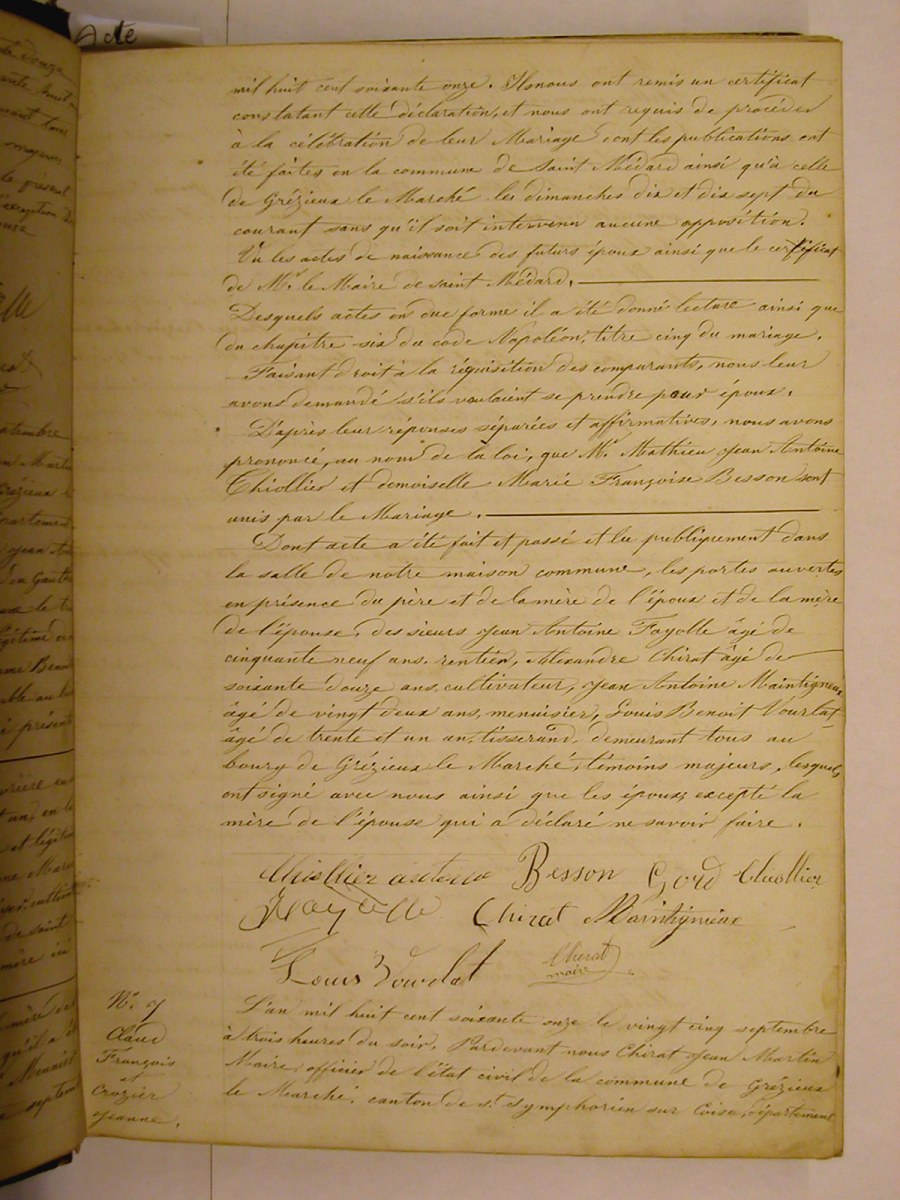 Acte
mil huit cent soixante onze. Ils nous ont remis un certificat
constatant cette déclaration, et nous ont requis de procéder
à la célébration de leur Mariage dont les publications ont
été faites en la commune de Saint Médard ainsi qu'à celle
de Grézieux le Marché les dimanches dix et dix sept du
courant sans qu'il soit intervenu aucune opposition.
Vu les actes de naissance des futurs époux ainsi que le certificat
de Mr. le Maire de saint Médard.
Desquels actes en due forme il a été donné lecture ainsi que
du chapitre six du code Napoléon, titre cinq du mariage.
Faisant droit à la réquisition des comparants, nous leur
avons demandé s'ils voulaient se prendre pour époux.
D'après leur réponses séparées et affirmatives, nous avons
prononcé, au nom de la loi, que Mr. Mathieu Jean Antoine
Thiollier et demoiselle Marie Françoise Besson sont
unis par le Mariage.
Dont acte a été fait et passé et lu publiquement dans
la salle de notre maison commune, les portes ouvertes
en présence du père et de la mère de l'époux et de la mère
de l'épouse, des sieurs Jean Antoine Fayolle âgé de
cinquante neuf ans, rentier, Alexandre Chirat âgé de
soixante douze ans, cultivateur, Jean Antoine Maintigneux
âgé de vingt deux ans, menuisier, Louis Benoit Vourlat
âgé de trente et un an, tisserand, demeurant tous au
bourg de Grézieux le Marché, témoins majeurs, lesquels
ont signé avec nous ainsi que les époux, excepté la
mère de l'épouse qui a déclaré ne savoir faire.
Thiollier Besson Gord Thiollier
Fayolle Chirat Maintignieux
Louis Vourlat Chirat
maire
N°. 9
Claud
François
et
Crozier
Jeanne.
L'an mil huit cent soixante onze le vingt cinq septembre
à trois heures du soir. Pardevant nous Chirat Jean Martin
Maire, officier de l'état civil de la commune de Grézieux
le Marché, canton de St. Symphorien sur Coise, département